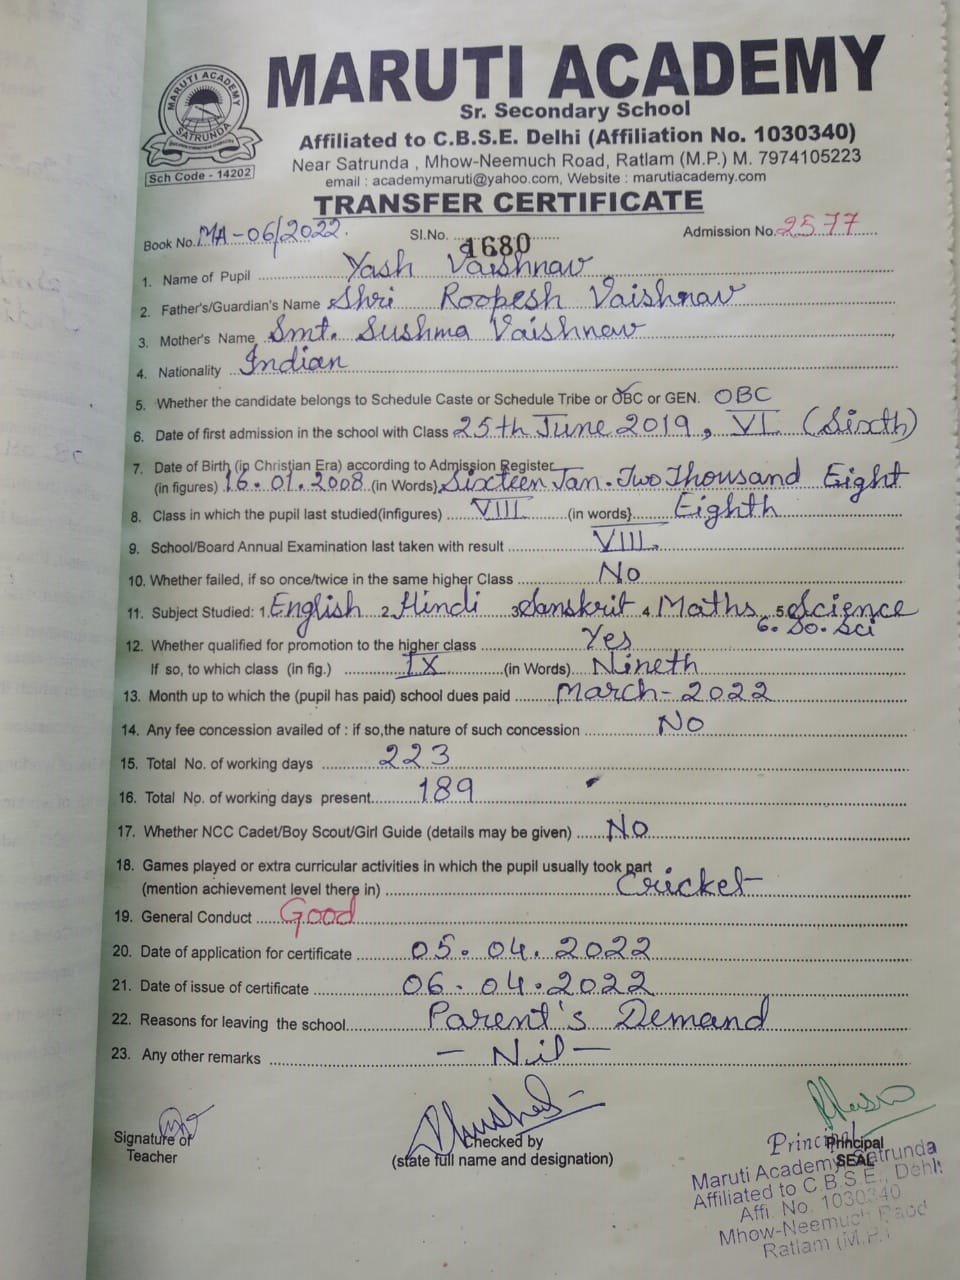 MARUTI ACADEMY
Sr. Secondary School
Affiliated to C.B.S.E. Delhi (Affiliation No. 1030340)
Near Satrunda , Mhow-Neemuch Road, Ratlam (M.P.) M. 7974105223
email : academymaruti@yahoo.com, Website : marutiacademy.com
MARUTI ACADEMY
SATRUNDA
Sch Code - 14202
TRANSFER CERTIFICATE
Book No. MA-06/2022. Sl.No. 1680 Admission No. 2577
1. Name of Pupil Yash Vaishnav
2. Father's/Guardian's Name Shri Roopesh Vaishnav
3. Mother's Name Smt. Sushma Vaishnav
4. Nationality Indian
5. Whether the candidate belongs to Schedule Caste or Schedule Tribe or OBC or GEN. OBC
6. Date of first admission in the school with Class 25th June 2019, VI (Sixth)
7. Date of Birth (in Christian Era) according to Admission Register
(in figures) 16.01.2008 (in Words) Sixteen Jan. Two Thousand Eight
8. Class in which the pupil last studied(infigures) VIII (in words) Eighth
9. School/Board Annual Examination last taken with result VIII
10. Whether failed, if so once/twice in the same higher Class No
11. Subject Studied: 1. English 2. Hindi 3. Sanskrit 4. Maths 5. Science
6. So. Sci
12. Whether qualified for promotion to the higher class Yes
If so, to which class (in fig.) IX (in Words) Nineth
13. Month up to which the (pupil has paid) school dues paid March-2022
14. Any fee concession availed of : if so,the nature of such concession No
15. Total No. of working days 223
16. Total No. of working days present 189
17. Whether NCC Cadet/Boy Scout/Girl Guide (details may be given) No
18. Games played or extra curricular activities in which the pupil usually took part
(mention achievement level there in) Cricket
19. General Conduct Good
20. Date of application for certificate 05.04.2022
21. Date of issue of certificate 06.04.2022
22. Reasons for leaving the school Parent's Demand
23. Any other remarks - Nil -
Signature of
Teacher
Checked by
(state full name and designation)
Principal
SEAL
Principal
Maruti Academy Satrunda
Affiliated to C.B.S.E., Dehli
Affi. No. 1030340
Mhow-Neemuch Road
Ratlam (M.P.)